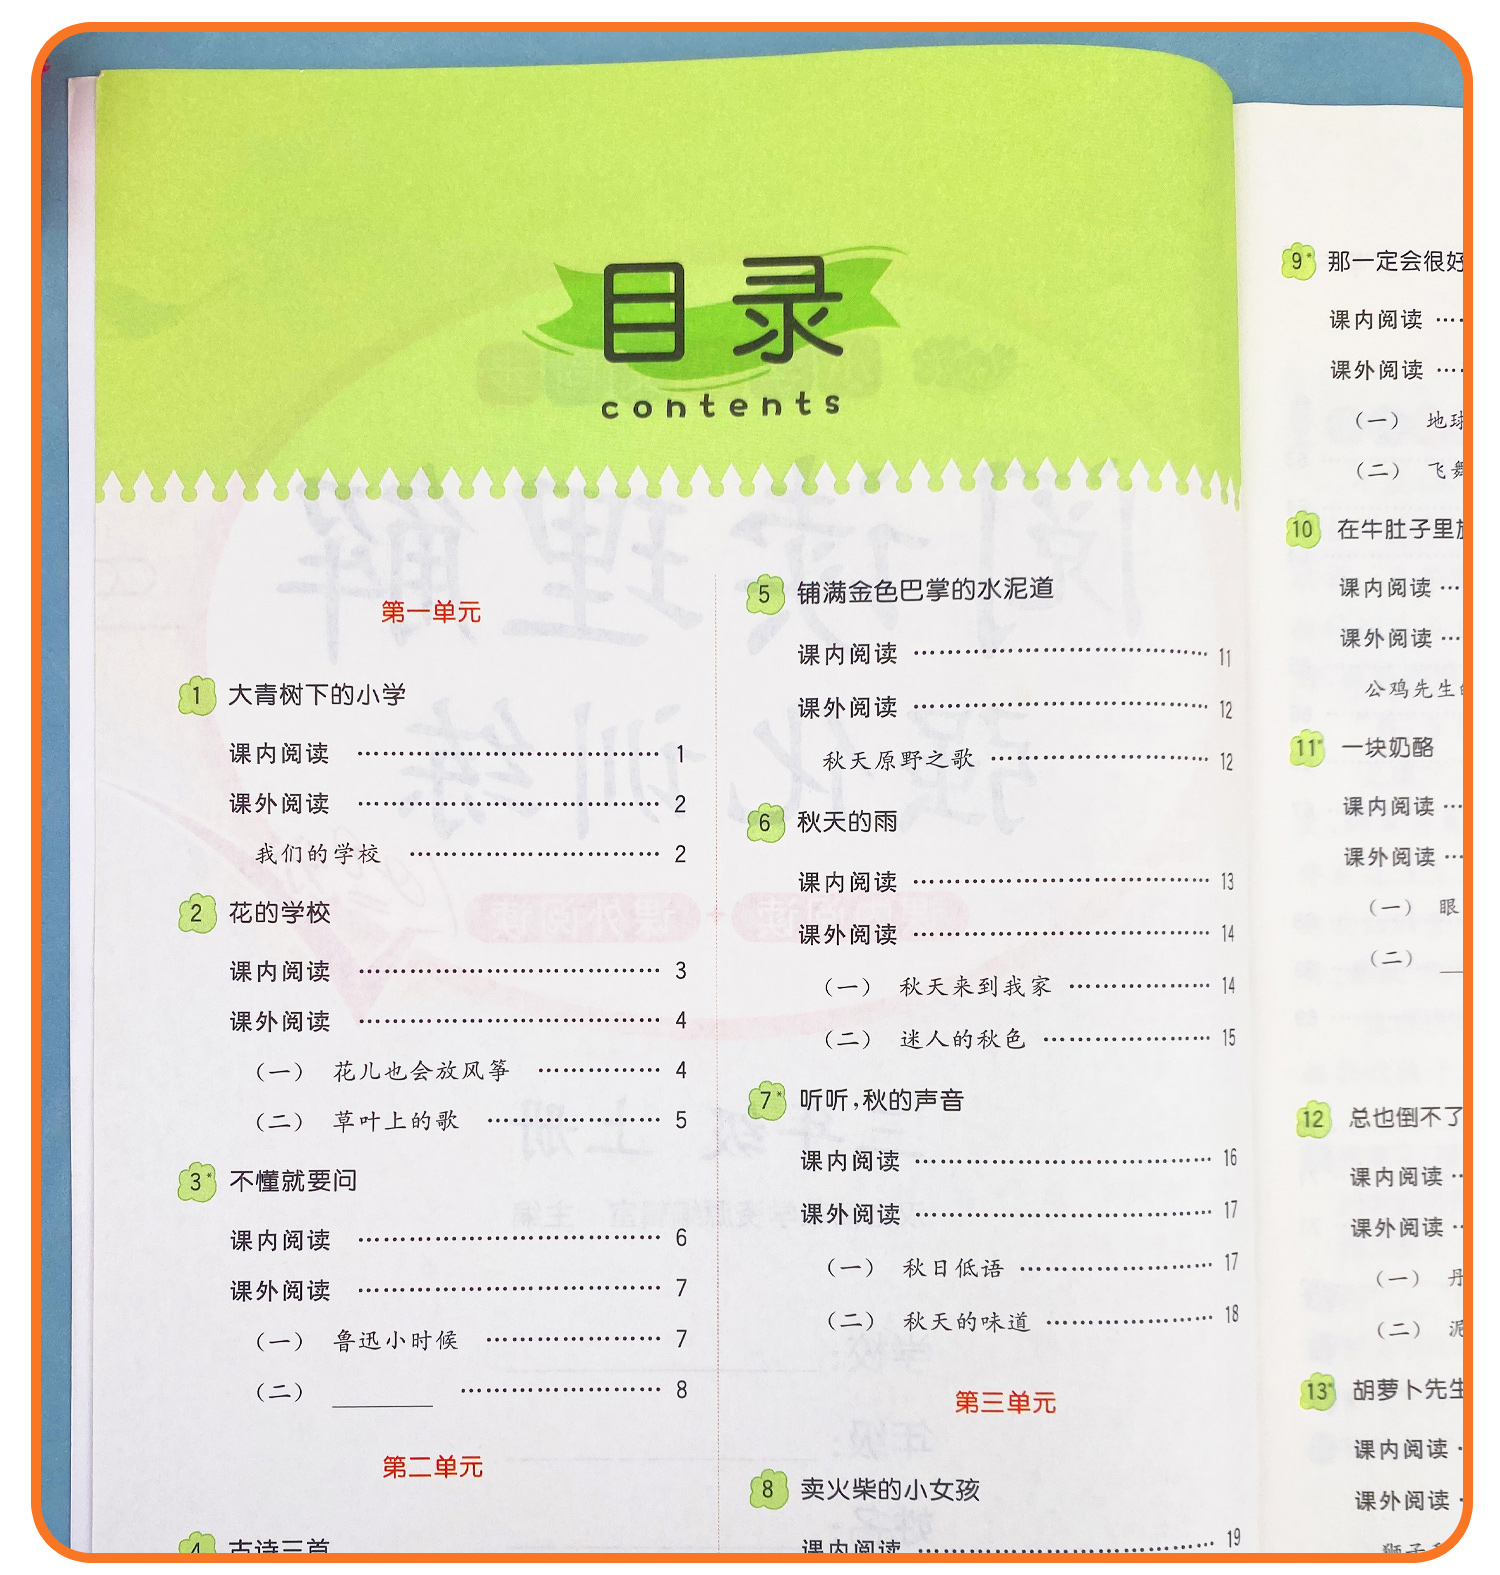 目录
contents
第一单元
1 大青树下的小学
课内阅读 …………………………… 1
课外阅读 …………………………… 2
我们的学校 ……………………… 2
2 花的学校
课内阅读 …………………………… 3
课外阅读 …………………………… 4
（一） 花儿也会放风筝 ………… 4
（二） 草叶上的歌 ……………… 5
3* 不懂就要问
课内阅读 …………………………… 6
课外阅读 …………………………… 7
（一） 鲁迅小时候 ……………… 7
（二） ________ ………………… 8
第二单元
4 古诗三首
5 铺满金色巴掌的水泥道
课内阅读 …………………………… 11
课外阅读 …………………………… 12
秋天原野之歌 …………………… 12
6 秋天的雨
课内阅读 …………………………… 13
课外阅读 …………………………… 14
（一） 秋天来到我家 …………… 14
（二） 迷人的秋色 ……………… 15
7* 听听，秋的声音
课内阅读 …………………………… 16
课外阅读 …………………………… 17
（一） 秋日低语 ………………… 17
（二） 秋天的味道 ……………… 18
第三单元
8 卖火柴的小女孩
课内阅读 …………………………… 19
9* 那一定会很好
课内阅读 …
课外阅读 …
（一） 地球
（二） 飞舞
10 在牛肚子里
课内阅读 …
课外阅读 …
公鸡先生
11* 一块奶酪
课内阅读 …
课外阅读 …
（一） 眼
（二） _
12 总也倒不了
课内阅读 …
课外阅读 …
（一） 丹
（二） 泥
13* 胡萝卜先生
课内阅读
课外阅读
狮子